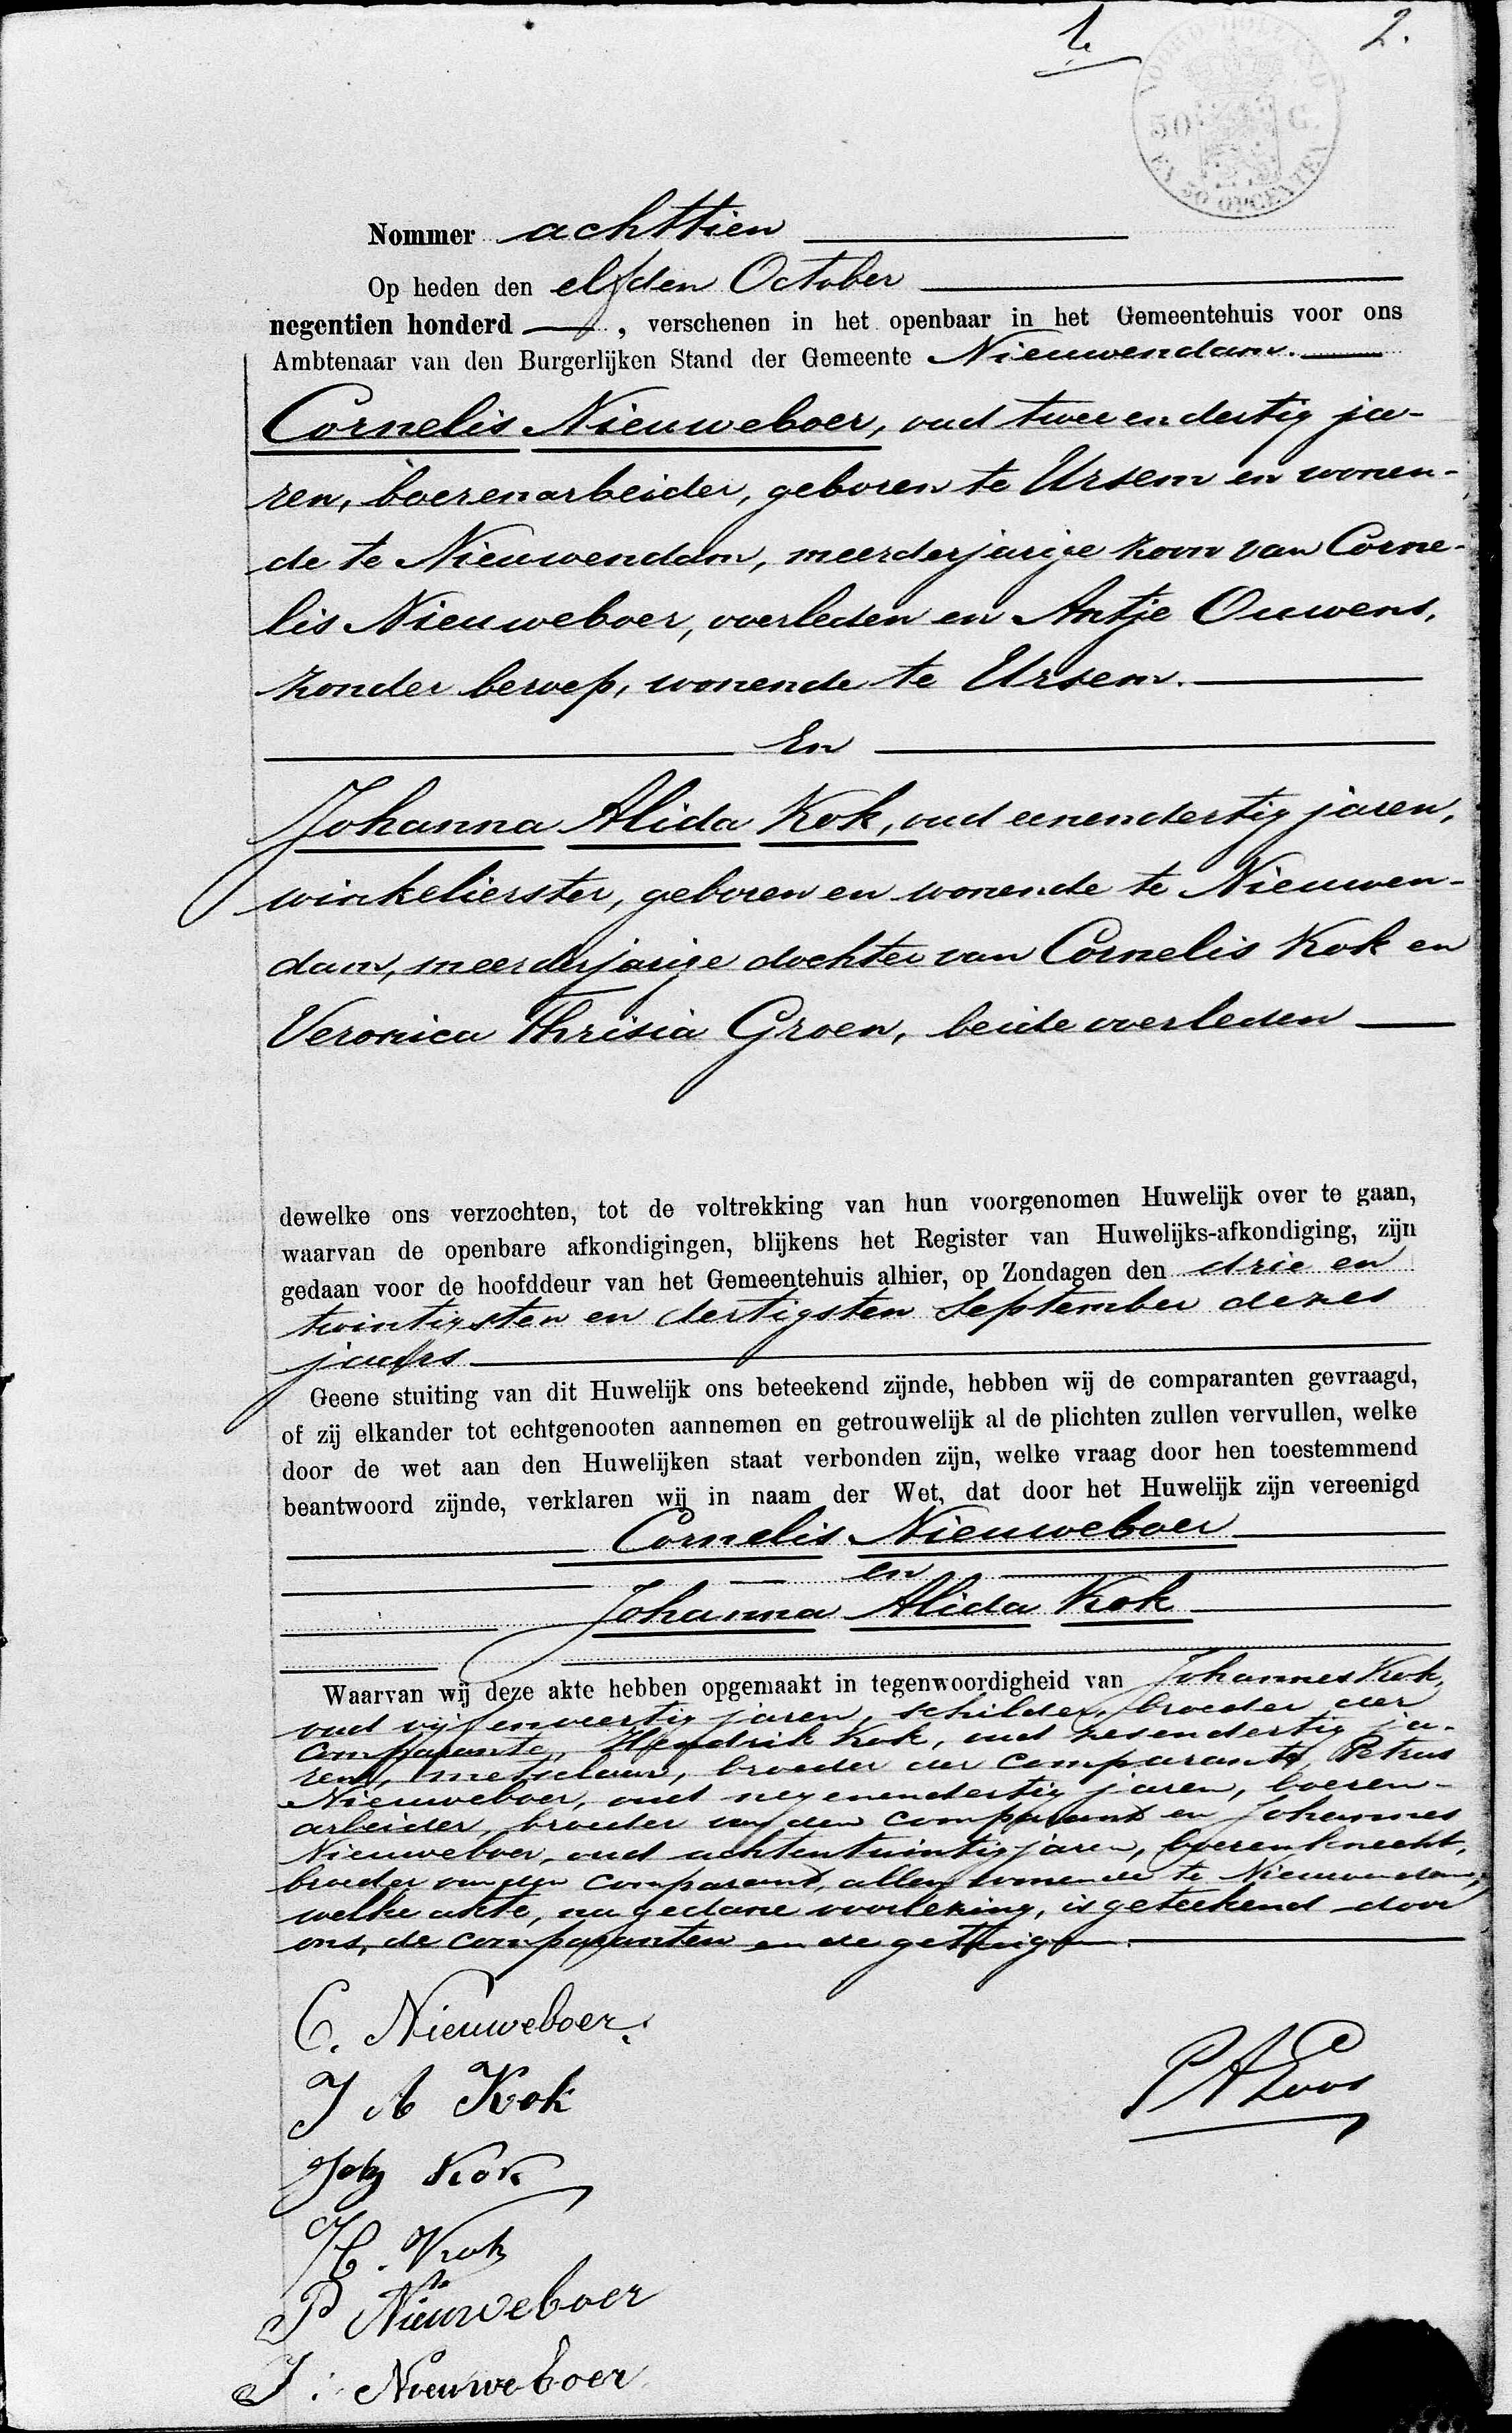 1e
2.
NOORD-HOLLAND
50 C.
EN 50 OPCENTEN
Nommer achttien
Op heden den elfden October
negentien honderd , verschenen in het openbaar in het Gemeentehuis voor ons
Ambtenaar van den Burgerlijken Stand der Gemeente Nieuwendam.
Cornelis Nieuweboer, oud twee en dertig ja-
ren, boerenarbeider, geboren te Ursem en wonen-
de te Nieuwendam, meerderjarige zoon van Corne-
lis Nieuweboer, overleden en Antje Ouwens,
zonder beroep, wonende te Ursem.
En
Johanna Alida Kok, oud eenendertig jaren,
winkelierster, geboren en wonende te Nieuwen-
dam, meerderjarige dochter van Cornelis Kok en
Veronica Thrisia Groen, beide overleden
dewelke ons verzochten, tot de voltrekking van hun voorgenomen Huwelijk over te gaan,
waarvan de openbare afkondigingen, blijkens het Register van Huwelijks-afkondiging, zijn
gedaan voor de hoofddeur van het Gemeentehuis alhier, op Zondagen den drie en
twintigsten en dertigsten September dezes
jaars
Geene stuiting van dit Huwelijk ons beteekend zijnde, hebben wij de comparanten gevraagd,
of zij elkander tot echtgenooten aannemen en getrouwelijk al de plichten zullen vervullen, welke
door de wet aan den Huwelijken staat verbonden zijn, welke vraag door hen toestemmend
beantwoord zijnde, verklaren wij in naam der Wet, dat door het Huwelijk zijn vereenigd
Cornelis Nieuweboer
en
Johanna Alida Kok
Waarvan wij deze akte hebben opgemaakt in tegenwoordigheid van Johannes Kok,
oud vijfenveertig jaren, schilder, broeder der
comparante, Hendrik Kok, oud zesendertig ja-
ren, metselaar, broeder der comparante, Petrus
Nieuweboer, oud negenendertig jaren, boeren-
arbeider, broeder van den comparant en Johannes
Nieuweboer, oud achtentwintig jaren, boerenknecht,
broeder van den comparant, allen wonende te Nieuwendam,
welke akte, na gedane voorlezing, is geteekend door
ons, de comparanten en de getuigen.
C. Nieuweboer.
J A Kok
PA Loos
Joh Kok
H. Kok
P Nieuweboer
J. Nieuweboer